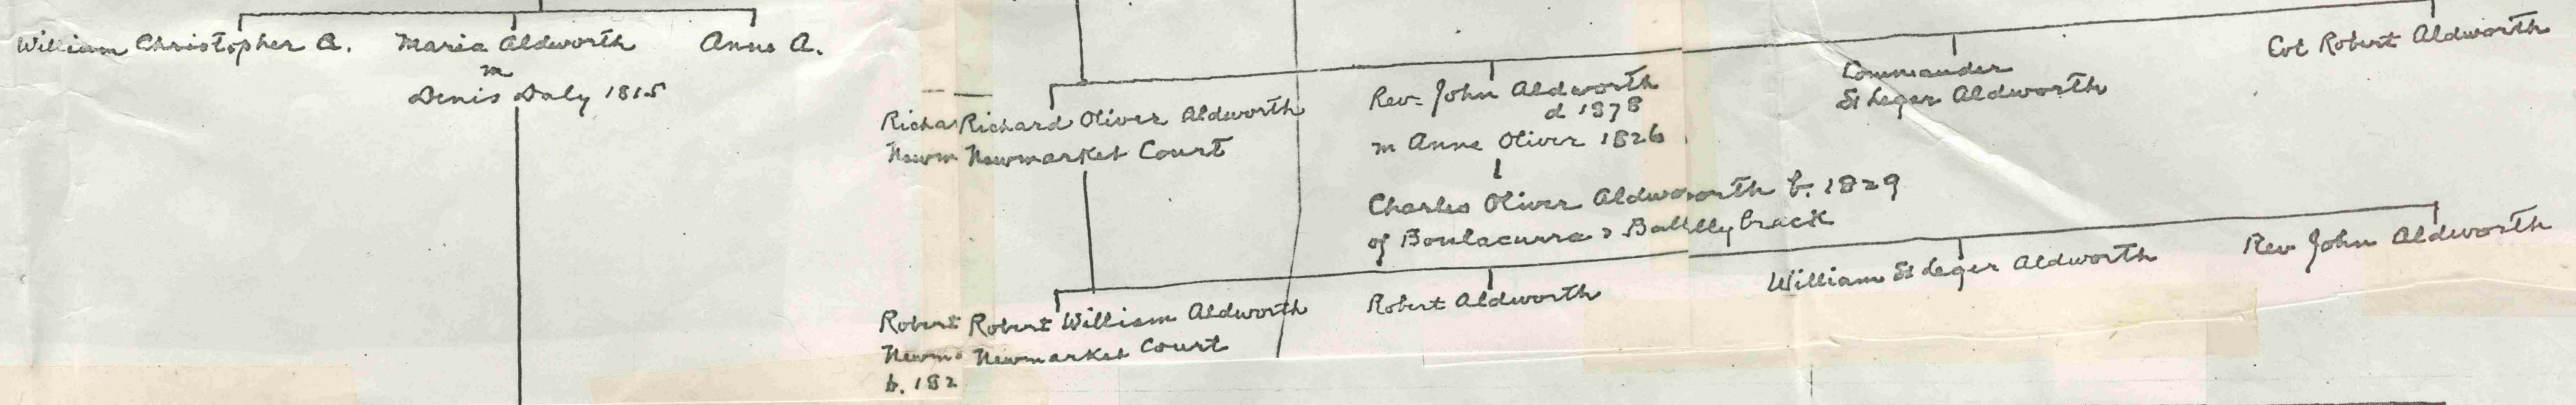 William Christopher A.
Maria Aldworth
m
Denis Daly 1815
Anne A.
Richard Oliver Aldworth
Newmarket Court
Rev. John Aldworth
d 1878
m Anne Oliver 1826
Charles Oliver Aldworth b. 1829
of
Commander
St Leger Aldworth
Col Robert Aldworth
Robert William Aldworth
Newmarket Court
b. 182
Robert Aldworth
William St Leger Aldworth
Rev John Aldworth